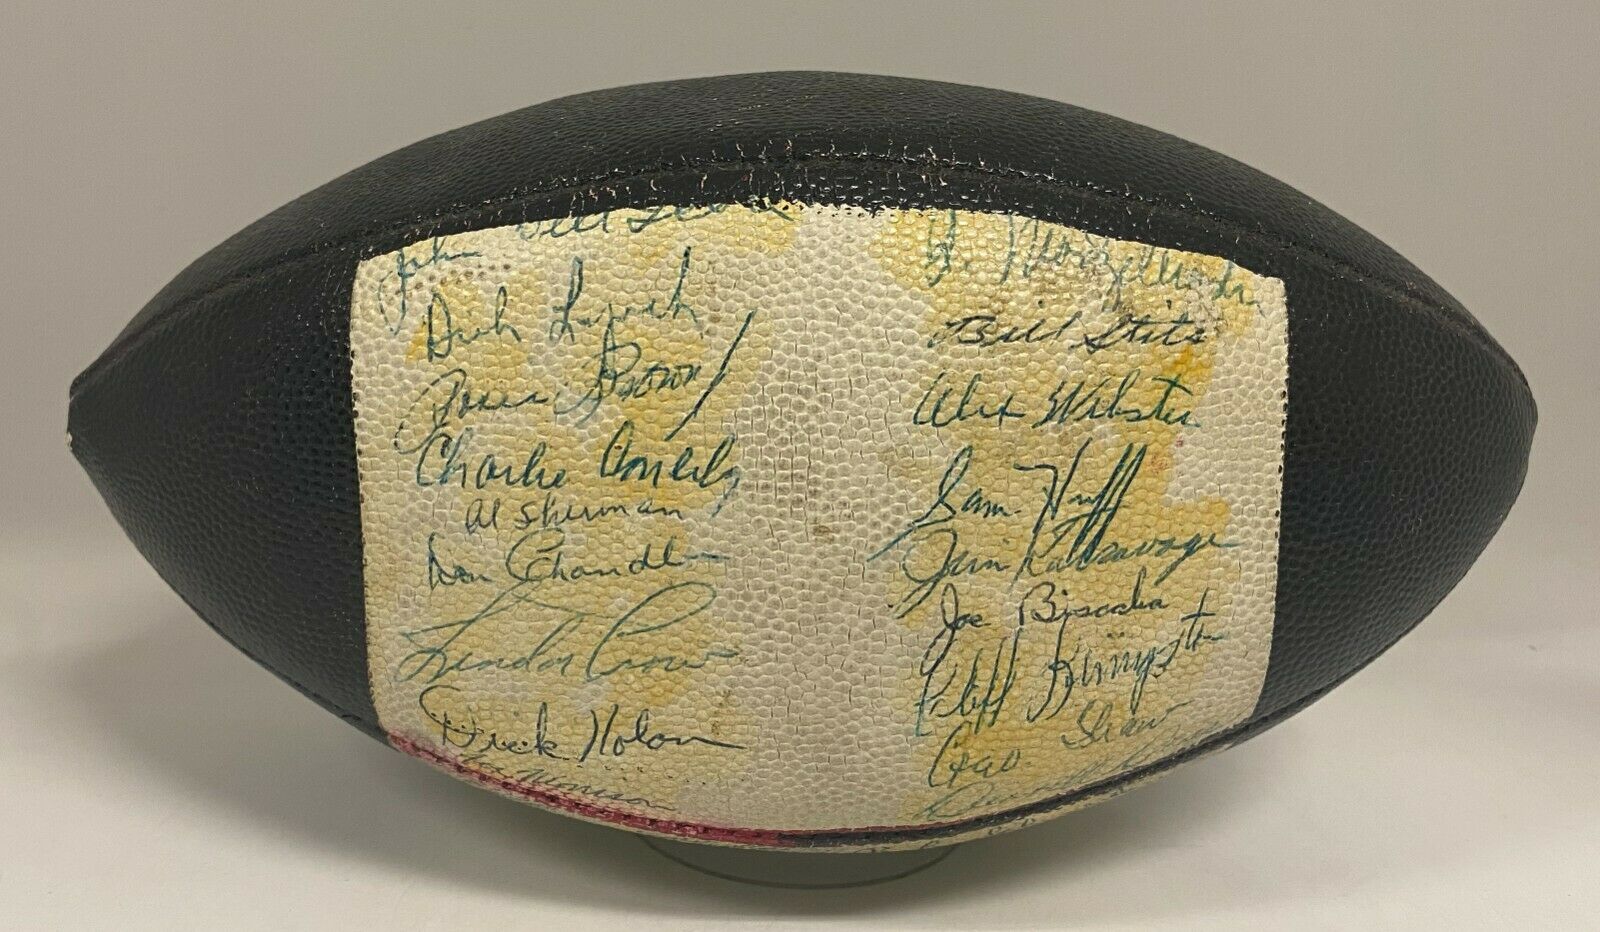 John
Bill
Dick Lynch
Rosey Brown
Charlie Conerly
Al Sherman
Don Chandler
Lindon Crow
Dick Nolan
Joe Morrison
Bill Stits
Alex Webster
Sam Huff
Jim Katcavage
Joe Biscaha
Cliff Livingston
Geo. Shaw